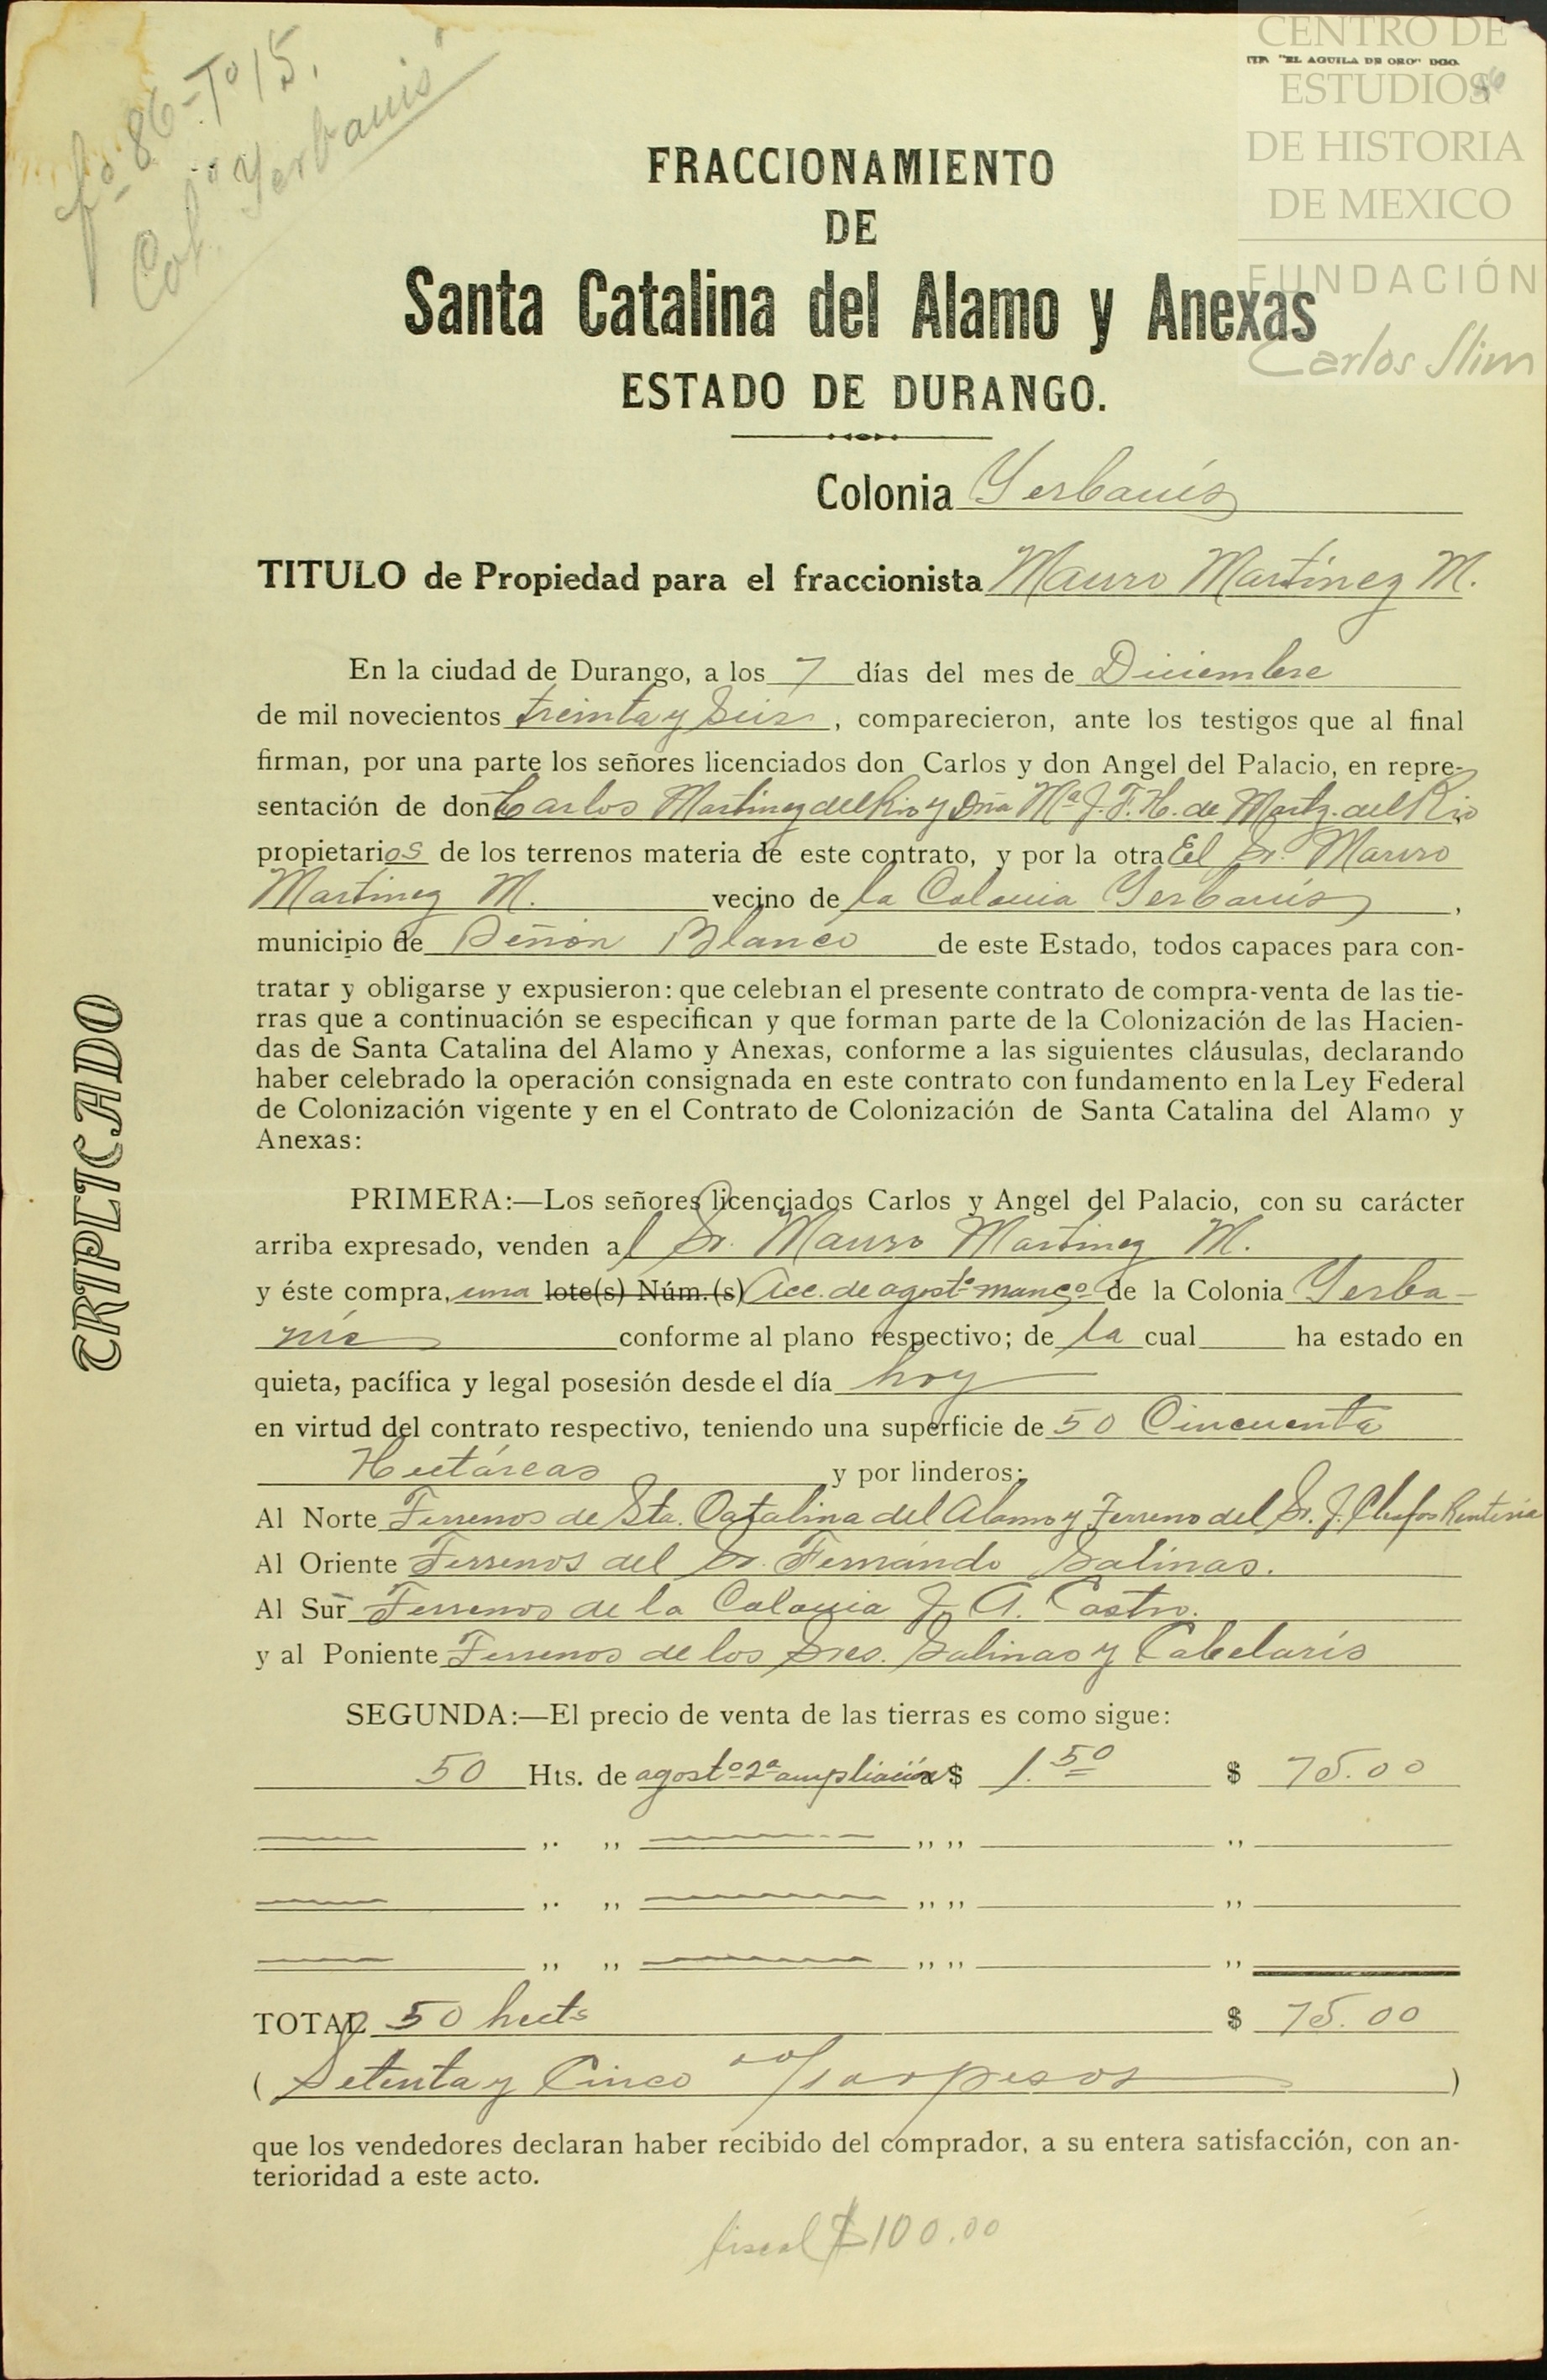 fo 86-To 15.
Col. "Yerbanis"
TIP. "EL AGUILA DE ORO" DGO.
CENTRO DE
ESTUDIOS
DE HISTORIA
DE MEXICO
FUNDACIÓN
Carlos Slim
FRACCIONAMIENTO
DE
Santa Catalina del Alamo y Anexas
ESTADO DE DURANGO.
Colonia Yerbanís
TITULO de Propiedad para el fraccionista Mauro Martínez M.
En la ciudad de Durango, a los 7 días del mes de Diciembre
de mil novecientos treinta y seis, comparecieron, ante los testigos que al final
firman, por una parte los señores licenciados don Carlos y don Angel del Palacio, en repre-
sentación de don Carlos Martinez del Rio y Dña Ma J. F. H. de Martz. del Rio
propietarios de los terrenos materia de este contrato, y por la otra El Sr. Mauro
Martinez M. vecino de la Colonia Yerbanís,
municipio de Peñón Blanco de este Estado, todos capaces para con-
tratar y obligarse y expusieron: que celebran el presente contrato de compra-venta de las tie-
rras que a continuación se especifican y que forman parte de la Colonización de las Hacien-
das de Santa Catalina del Alamo y Anexas, conforme a las siguientes cláusulas, declarando
haber celebrado la operación consignada en este contrato con fundamento en la Ley Federal
de Colonización vigente y en el Contrato de Colonización de Santa Catalina del Alamo y
Anexas:
PRIMERA:—Los señores licenciados Carlos y Angel del Palacio, con su carácter
arriba expresado, venden al Sr. Mauro Martinez M.
y éste compra, una lote(s) Núm.(s) Acc. de agosto mancо de la Colonia Yerba-
nís conforme al plano respectivo; de la cual ha estado en
quieta, pacífica y legal posesión desde el día hoy
en virtud del contrato respectivo, teniendo una superficie de 50 Cincuenta
Hectáreas y por linderos:
Al Norte Terrenos de Sta. Catalina del Alamo y Terreno del Sr. J. Cleofas Renteria
Al Oriente Terrenos del Sr. Fernándo Salinas.
Al Sur Terrenos de la Colonia J. A. Castro.
y al Poniente Terrenos de los Sres. Salinas y
SEGUNDA:—El precio de venta de las tierras es como sigue:
50 Hts. de agosto 2a ampliación $ 1.50 $ 75.00
,, ,, ,, ,, ,,
,, ,, ,, ,, ,,
,, ,, ,, ,, ,,
TOTAL 50 hects $ 75.00
( Setenta y Cinco 00/100 pesos )
que los vendedores declaran haber recibido del comprador, a su entera satisfacción, con an-
terioridad a este acto.
fiscal $100.00
TRIPLICADO